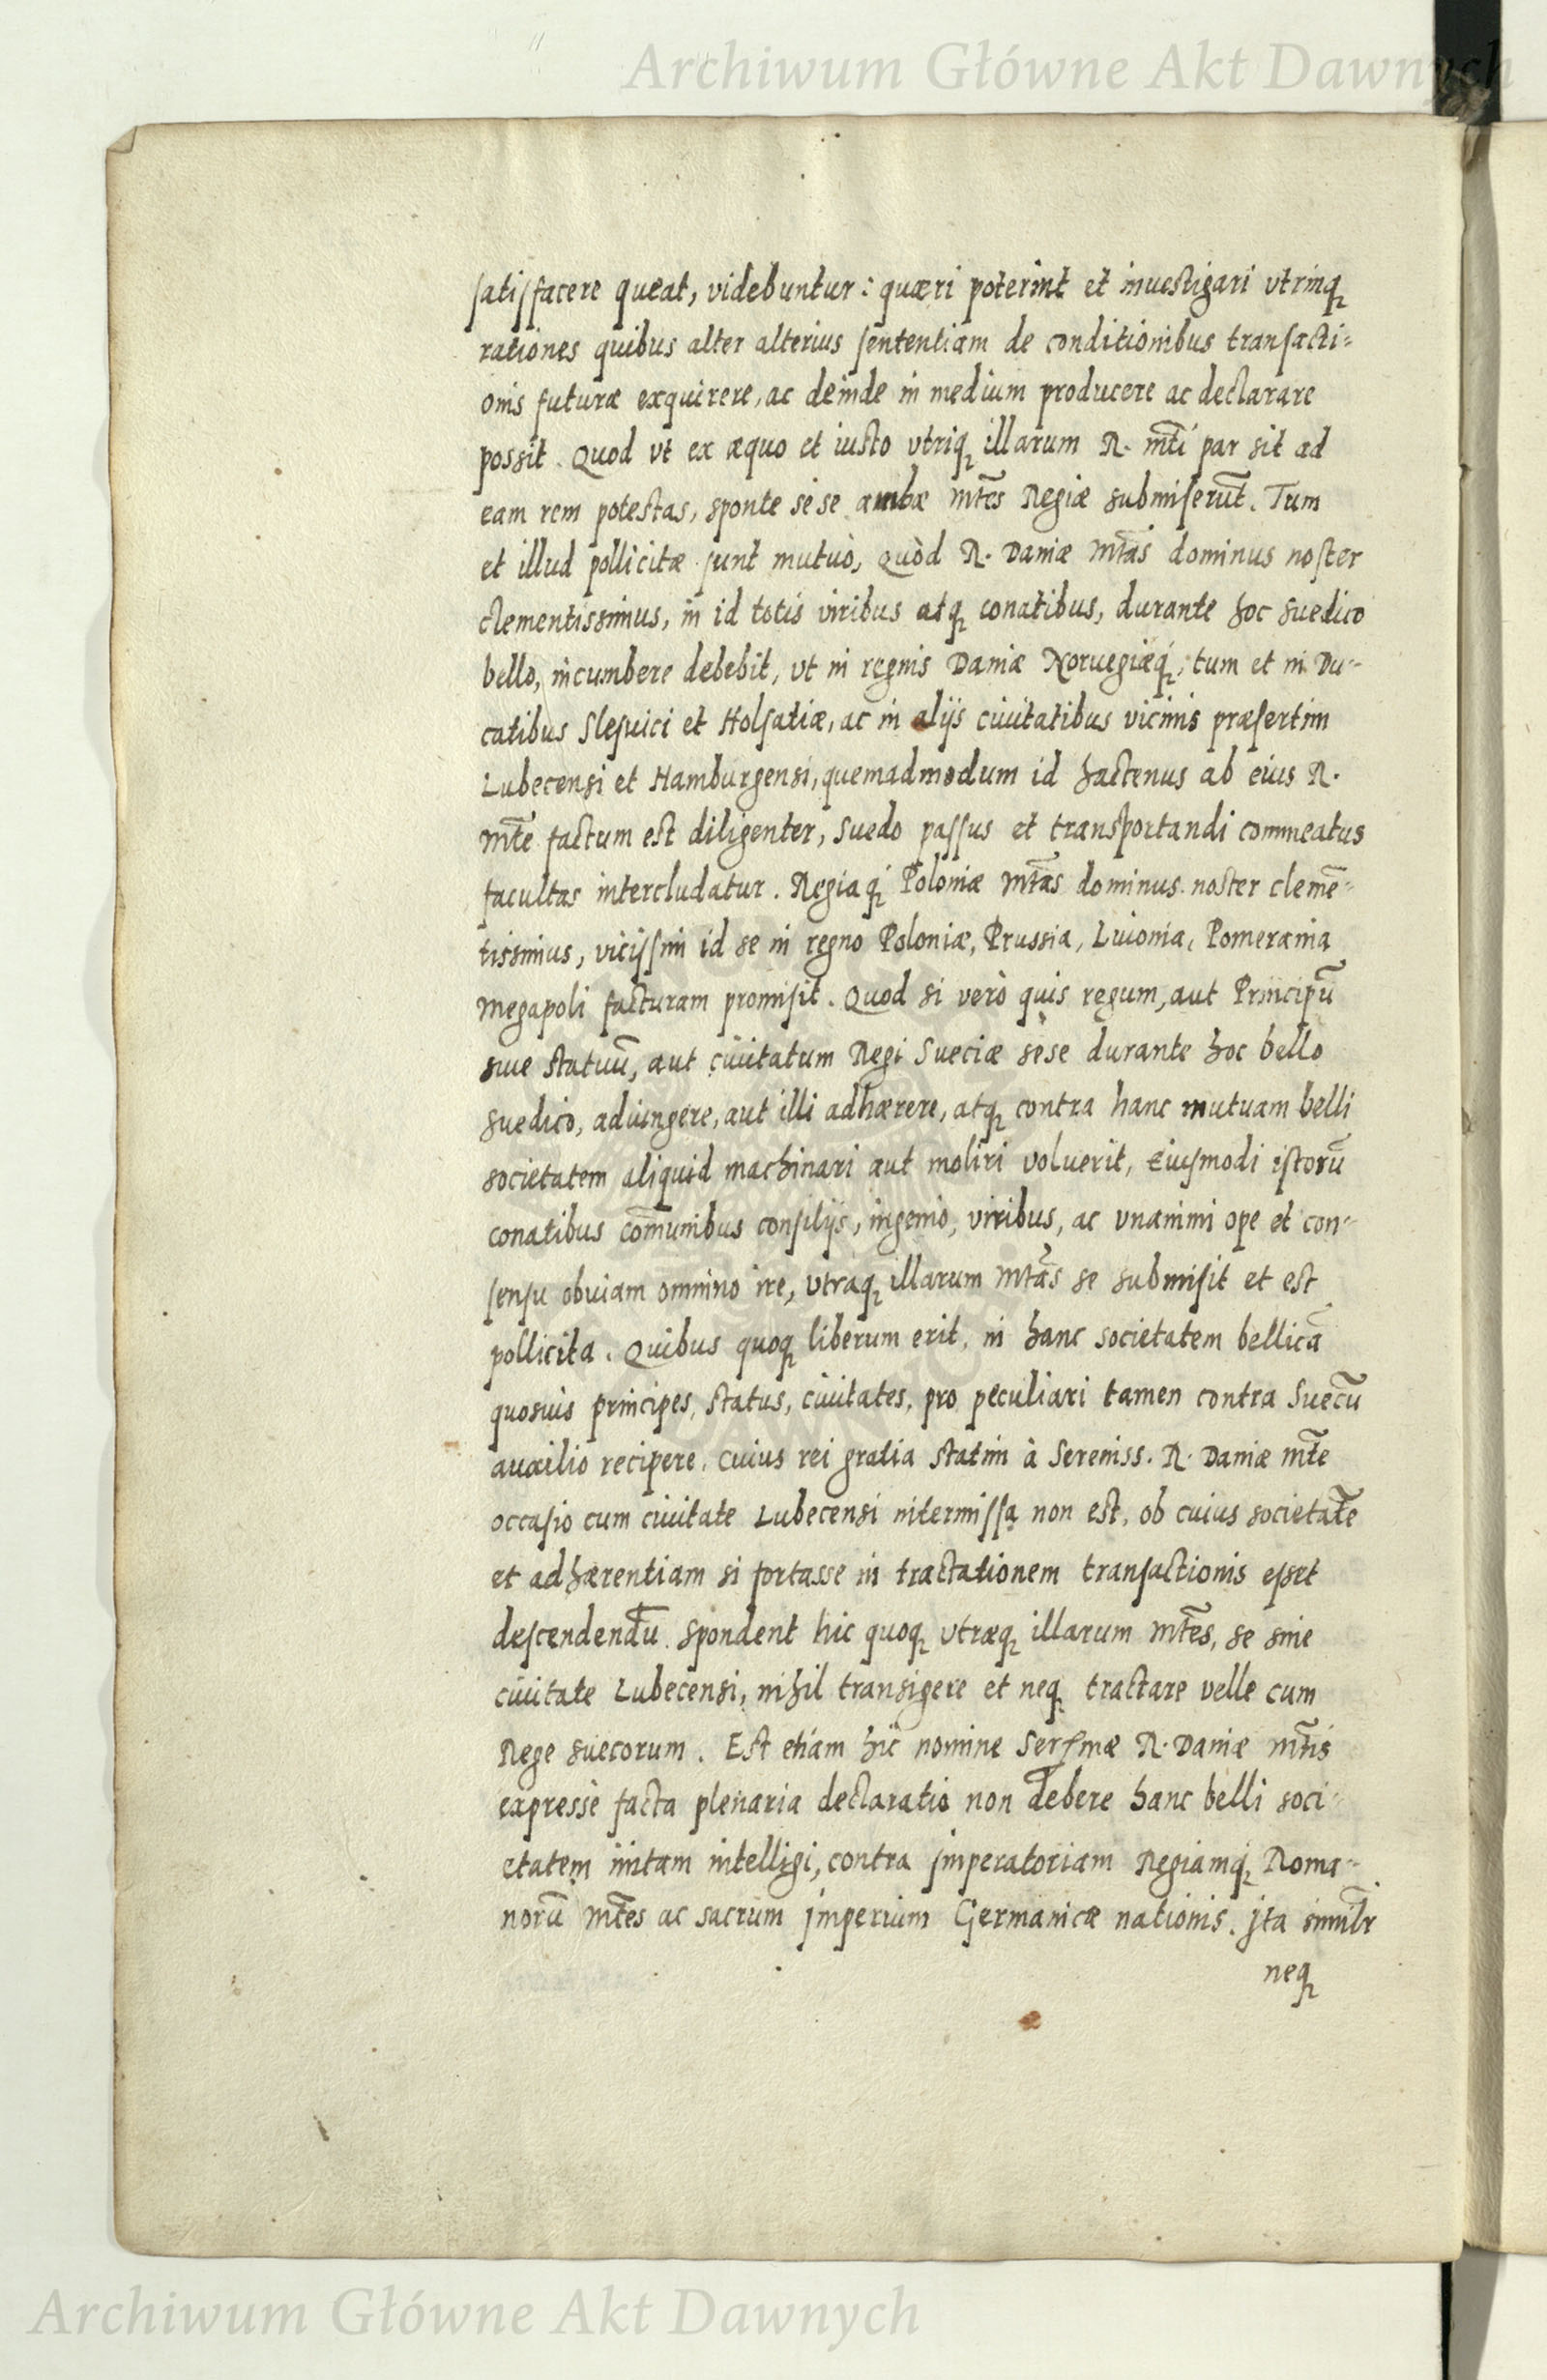 Archiwum Główne Akt Dawnych
satisfacere queat, videbuntur: quæri poterint et inuestigari vtrinq;
rationes quibus alter alterius sententiam de conditionibus transacti=
onis futuræ exquirere, ac deinde in medium producere ac declarare
possit. Quod vt ex æquo et iusto vtriq; illarum R. mti par sit ad
eam rem potestas, sponte sese ambæ mtes Regiæ submiserūt. Tum
et illud pollicitæ sunt mutuò, Quòd R. Daniæ Mtas dominus noster
clementissimus, in id totis viribus atq; conatibus, durante hoc suedico
bello, incumbere debebit, vt in regnis Daniæ Noruegiæq;, tum et in Du-
catibus Slesuici et Holsatiæ, ac in alijs ciuitatibus vicinis præsertim
Lubecensi et Hamburgensi, quemadmodum id hactenus ab eius R.
mte factum est diligenter, Suedo passus et transportandi commeatus
facultas intercludatur. Regiaq; Poloniæ Mtas dominus noster clemē-
tissimus, vicissim id se in regno Poloniæ, Prussia, Liuonia, Pomerania
Megapoli facturam promisit. Quod si verò quis regum, aut Principū
siue statuū, aut ciuitatum Regi Sueciæ sese durante hoc bello
suedico, adiungere, aut illi adhærere, atq; contra hanc mutuam belli
societatem aliquid machinari aut moliri voluerit, Eiusmodi istorū
conatibus com̄unibus consilijs, ingenio, viribus, ac vnanimi ope et con-
sensu obuiam omnino ire, vtraq; illarum Mtas se submisit et est
pollicita. Quibus quoq; liberum erit, in hanc societatem bellicā
quosuis principes, status, ciuitates, pro peculiari tamen contra Suecū
auxilio recipere. Cuius rei gratia statim à Sereniss. R. Daniæ mte
occasio cum ciuitate Lubecensi intermissa non est, ob cuius societatē
et adhærentiam si fortasse in tractationem transactionis esset
descendendū. Spondent hic quoq; vtræq; illarum Mtes, se sine
ciuitate Lubecensi, nihil transigere et neq; tractare velle cum
Rege suecorum. Est etiam hîc nomine Sersmæ R. Daniæ Mtis
expressè facta plenaria declaratio non debere hanc belli soci-
etatem initam intelligi, contra Imperatoriam Regiamq; Roma-
norū Mtes ac sacrum Imperium Germanicæ nationis. Ita simil̄r
neq;
Archiwum Główne Akt Dawnych